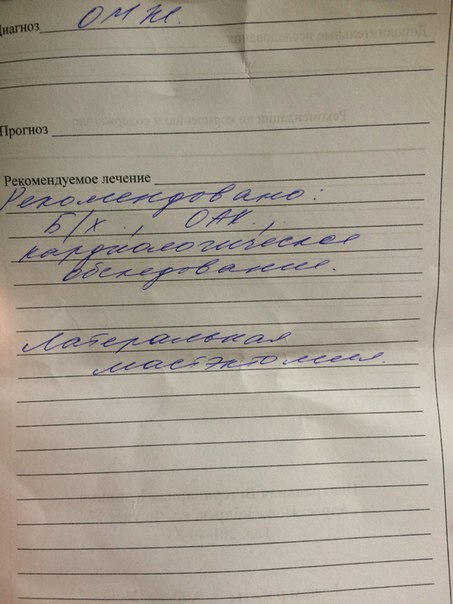 Диагноз ОМЖ.
Прогноз
Рекомендуемое лечение
Рекомендовано:
Б/х., ОАК.,
кардиологическое
обследование.
Латеральная
мастэктомия.